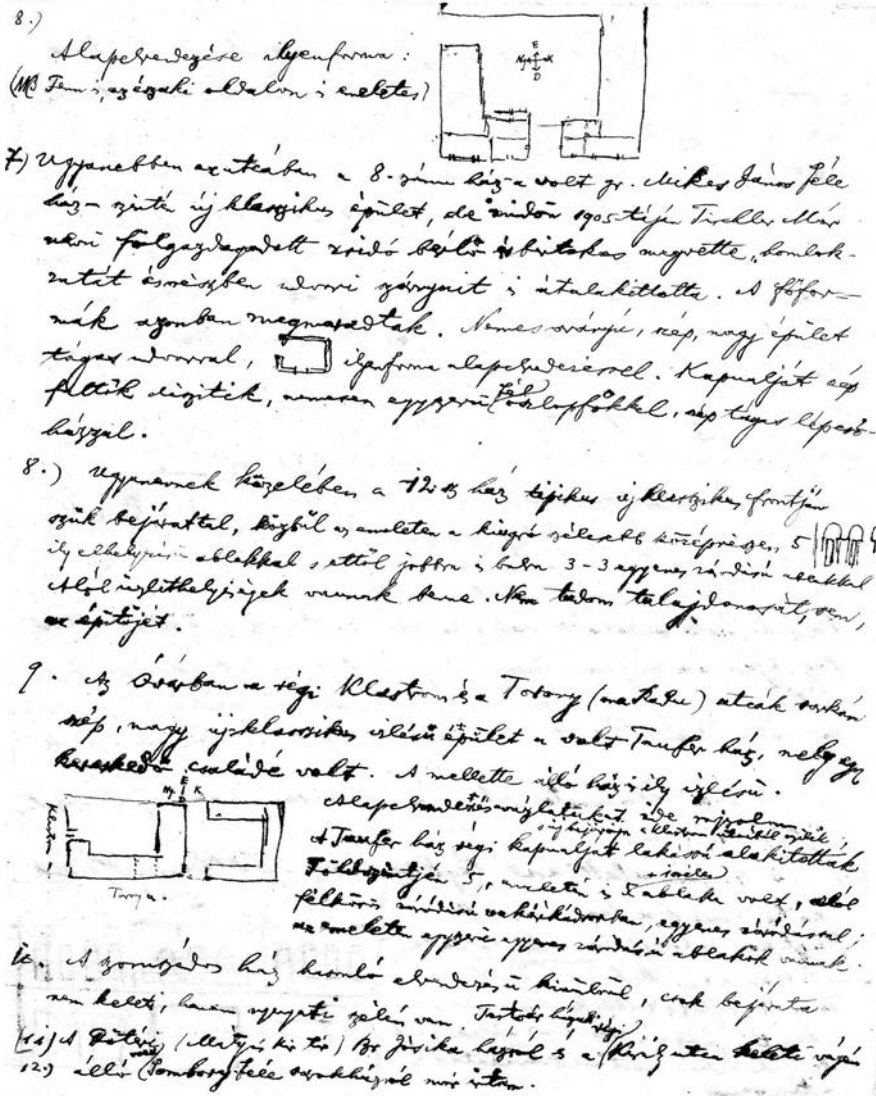 8.)
Alapelrendezése ilyenforma:
(NB Fenn is, az északi oldalon is emeletes)
É
Ny K
D
7.) Ugyanebben az utcában a 8. számú ház – a volt gr. Mikes János féle
ház – szintén új klasszikus épület, de midőn 1905 táján Tischler Mór
nevű fölgazdagodott zsidó bérlő és birtokos megvette, homlok-
zatát és részben udvari szárnyait is átalakíttatta. A főfor-
mák azonban megmaradtak. Nemes arányú, szép, nagy épület
tágas udvarral, ilyenforma alapelrendezéssel. Kapualját szép
fülkék díszítik, nemesen egyszerű fél oszlopfőkkel, szép tágas lépcső-
házzal.
8.) Ugyanennek közelében a 12. sz ház tipikus új klasszikus frontján
szűk bejárattal, középül az emeleten a kiugró szélesebb középrészen, 5
ily elhelyezésű ablakkal s attól jobbra is balra 3-3 egyenes záródású ablakkal
Alól üzlethelyiségek vannak benne. Nem tudom tulajdonosát, sem,
az építőjét.
9. Az Óvárban a régi Klastrom és a Torony (ma Radu) utcák sarkán
szép, nagy új-klasszikus ízlésű épület a volt Taufer ház, mely egy
kereskedő családé volt. A mellette álló ház is ily ízlésű.
É
Ny K
D
Klastrom u.
Torony u.
Alapelrendezésvázlatukat ide rajzolom
s új bejárója a klastrom utcából nyílik
A Taufer ház régi kapualját lakássá alakították
Földszintjén 5, emeletén is ablaka volt, alól
félkörös záródású vakárkádsorban, egyenes záródással;
az emeleten egyszerű egyenes záródású ablakok vannak.
10. A szomszédos ház hasonló elrendezésű kívülről, csak bejárata
nem keleti, hanem nyugati szélén van.
11.) A Főtéri (Mátyás kir tér) Br Jósika házról és a (Király utca keleti végén
12.) álló Tombory féle sarokházról már írtam.